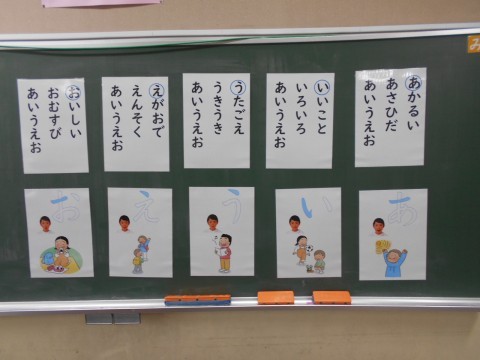 あかるい
あさひだ
あいうえお
いいこと
いろいろ
あいうえお
うたごえ
うきうき
あいうえお
えがおで
えんそく
あいうえお
おいしい
おむすび
あいうえお
あ
い
う
え
お
み